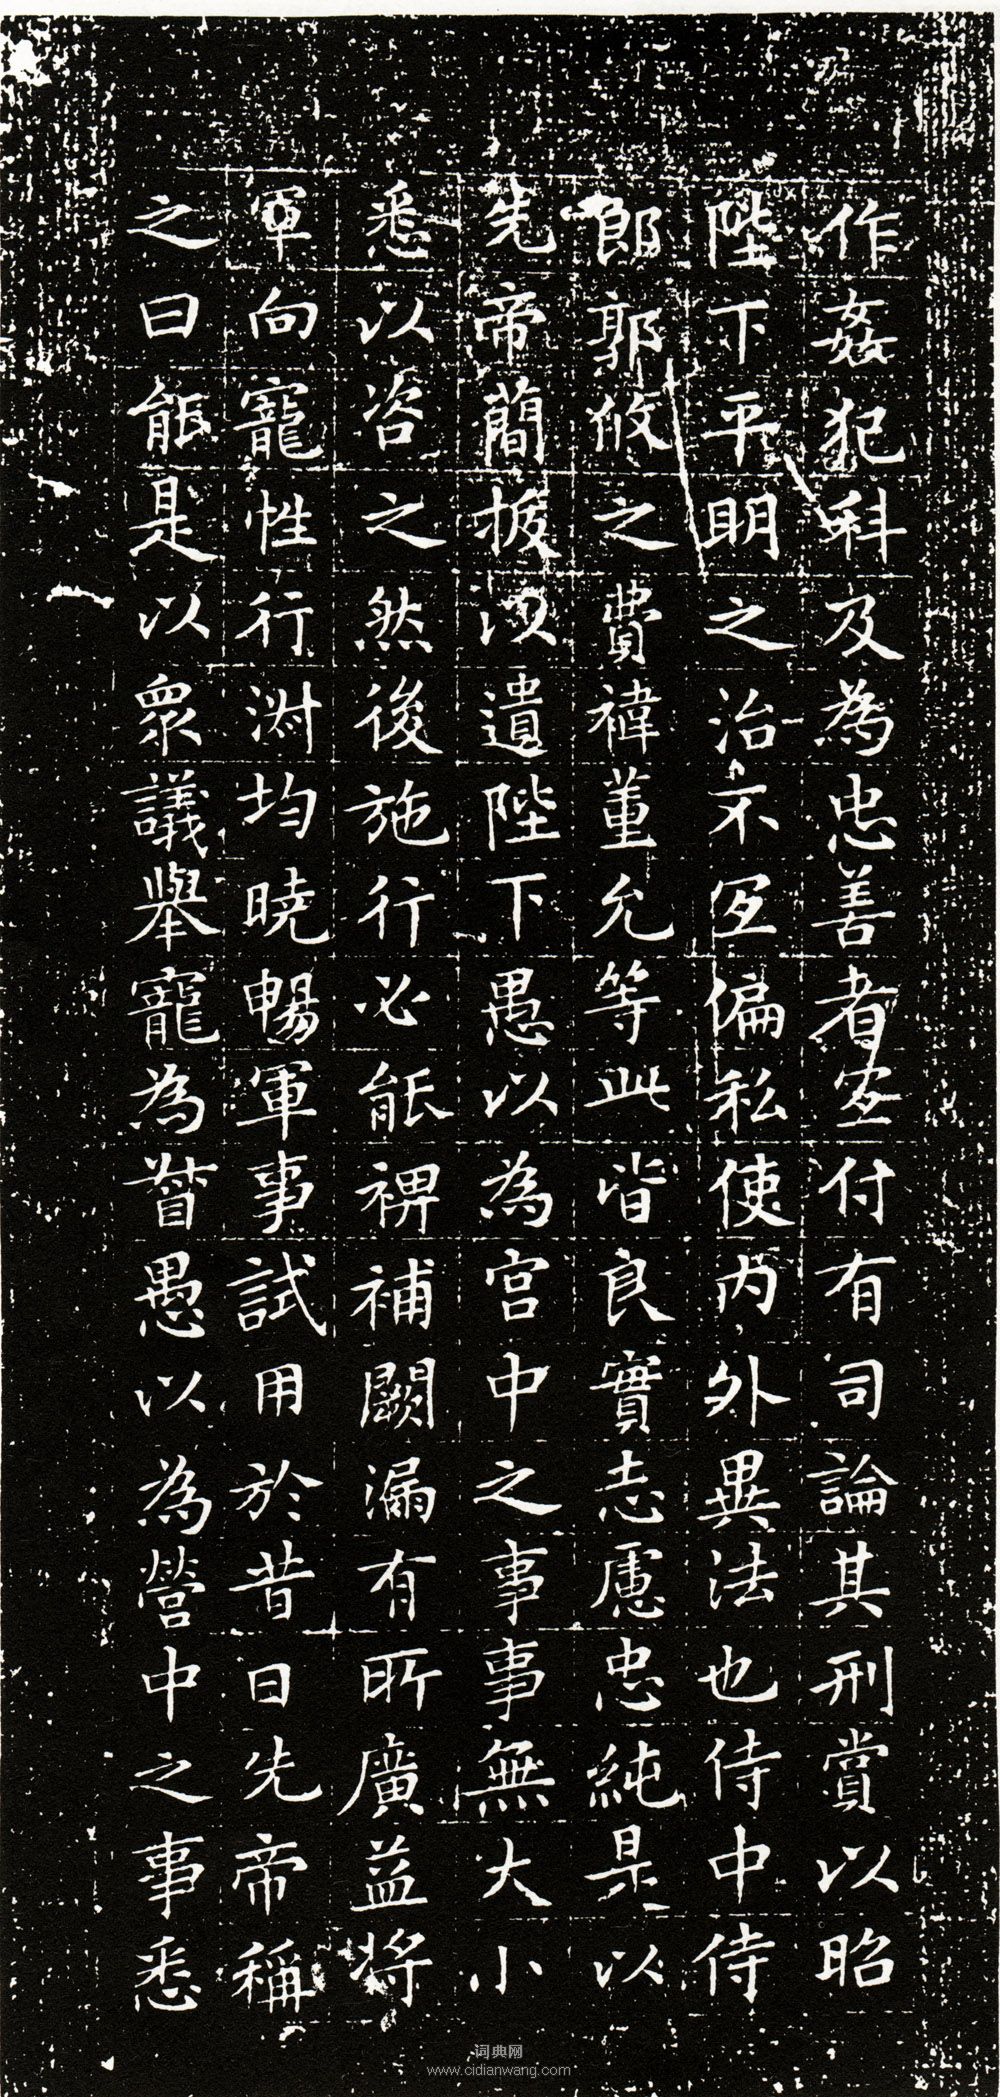 作姦犯科及為忠善者宜付有司論其刑賞以昭
陛下平明之治不宜偏私使內外異法也侍中侍
郎郭攸之費禕董允等此皆良實志慮忠純是以
先帝蕳拔以遺陛下愚以為宮中之事事無大小
悉以咨之然後施行必能裨補闕漏有所廣益將
軍向寵性行淑均曉暢軍事試用於昔日先帝稱
之曰能是以眾議舉寵為督愚以為營中之事悉
词典网
www.cidianwang.com